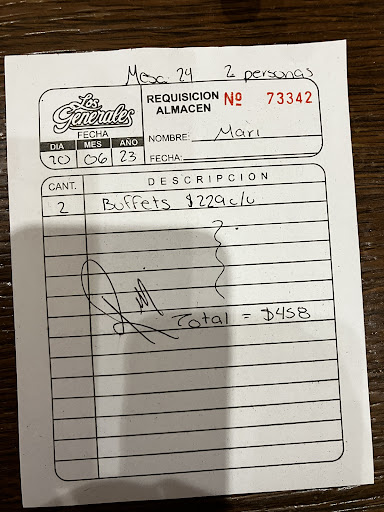 Mesa 24 2 personas
Los Generales
REQUISICION ALMACEN Nº 73342
FECHA
DIA MES AÑO
20 06 23
NOMBRE: Mari
FECHA:
CANT. DESCRIPCION
2 Buffets $229 c/u
Total = $458